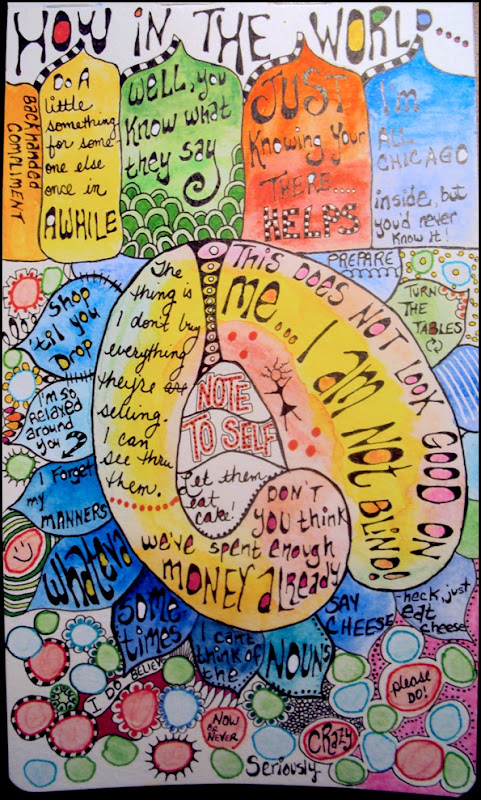 HOW IN THE WORLD....
BACKHANDED
COMPLIMENT
DO A
little
something
for some-
one else
once in
AWHILE
Well, you
know what
they say
JUST
Knowing Your
THERE....
HELPS
I'm
ALL
CHICAGO
inside, but
you'd never
know it!
PREPARE
TURN
THE
TABLES
Shop
'til you
Drop
I'm so
Relaxed
around
you
I Forget
my
MANNERS
whateva
some
times
I can't
think of
the
NOUNS
SAY
CHEESE
-heck, just
eat
cheese
The
thing is
I don't buy
everything
they're
selling.
I can
see thru
them.
THIS DOES NOT LOOK GOOD ON
me... I am NOT BLIND!
NOTE
TO SELF
Let them
eat
cake!
DON'T
you think
we've spent enough
MONEY already
I DO BELIEVE
NOW
OR
NEVER
CRAZY
please
DO!
Seriously